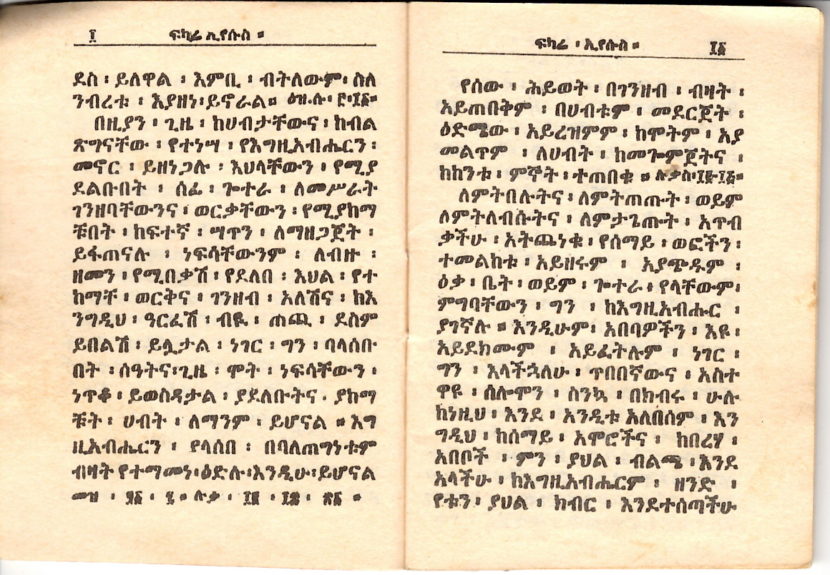 ፲ ፍካሬ ኢየሱስ ።
ደስ ፡ ይለዋል ፡ እምቢ ፡ ብትለውም ፡ ስለ
ንብረቱ ፡ እያዘነ ፡ ይኖራል ።
በዚያን ፡ ጊዜ ፡ ከሀብታቸውና ፡ ከብል
ጽግናቸው ፡ የተነሣ ፡ የእግዚአብሔርን ፡
መኖር ፡ ይዘነጋሉ ፡ እህላቸውን ፡ የሚያ
ደልቡበት ፡ ሰፊ ፡ ጐተራ ፡ ለመሥራት
ገንዘባቸውንና ፡ ወርቃቸውን ፡ የሚያከማ
ቹበት ፡ ከፍተኛ ፡ ሣጥን ፡ ለማዘጋጀት ፡
ይፋጠናሉ ፡ ነፍሳቸውንም ፡ ለብዙ ፡
ዘመን ፡ የሚበቃሽ ፡ የደለበ ፡ እህል ፡ የተ
ከማቸ ፡ ወርቅና ፡ ገንዘብ ፡ አለሽና ፡ ከእ
ንግዲህ ፡ ዓርፈሽ ፡ ብዪ ፡ ጠጪ ፡ ደስም
ይበልሽ ፡ ይሏታል ፡ ነገር ፡ ግን ፡ ባላሰቡ
በት ፡ ሰዓትና ፡ ጊዜ ፡ ሞት ፡ ነፍሳቸውን ፡
ነጥቆ ፡ ይወስዳታል ፡ ያደለቡትና ፡ ያከማ
ቹት ፡ ሀብት ፡ ለማንም ፡ ይሆናል ። እግ
ዚአብሔርን ፡ ያላሰበ ፡ በባለጠግነቱም
ብዛት የተማመነ ፡ ዕድሉ ፡ እንዲሁ ፡ ይሆናል
መዝ ፡ ሉቃ ፡ ፲፪ ፡
ፍካሬ ፡ ኢየሱስ ። ፲፩
የሰው ፡ ሕይወት ፡ በገንዘብ ፡ ብዛት ፡
አይጠበቅም ፡ በሀብቱም ፡ መደርጀት ፡
ዕድሜው ፡ አይረዝምም ፡ ከሞትም ፡ አያ
መልጥም ፡ ለሀብት ፡ ከመጐምጀትና ፡
ከከንቱ ፡ ምኞት ፡ ተጠበቁ ። ሉቃስ ፡ ፲፪ ፡ ፲፭ ።
ለምትበሉትና ፡ ለምትጠጡት ፡ ወይም
ለምትለብሱትና ፡ ለምታጌጡት ፡ አጥብ
ቃችሁ ፡ አትጨነቁ ፡ የሰማይ ፡ ወፎችን ፡
ተመልከቱ ፡ አይዘሩም ፡ አያጭዱም ፡
ዕቃ ፡ ቤት ፡ ወይም ፡ ጐተራ ፡ የላቸውም ፡
ምግባቸውን ፡ ግን ፡ ከእግዚአብሔር ፡
ያገኛሉ ። እንዲሁም ፡ አበባዎችን ፡ እዩ ፡
አይደክሙም ፡ አይፈትሉም ፡ ነገር ፡
ግን ፡ እላችኋለሁ ፡ ጥበበኛውና ፡ አስተ
ዋዩ ፡ ሰሎሞን ፡ ስንኳ ፡ በክብሩ ፡ ሁሉ
ከነዚህ ፡ እንደ ፡ አንዲቱ አለበሰም ፡ እን
ግዲህ ፡ ከሰማይ ፡ አሞሮችና ፡ ከበረሃ ፡
አበቦች ፡ ምን ፡ ያህል ፡ ብልጫ ፡ እንደ
አላችሁ ፡ ከእግዚአብሔርም ፡ ዘንድ ፡
የቱን ፡ ያህል ፡ ክብር ፡ እንደተሰጣችሁ